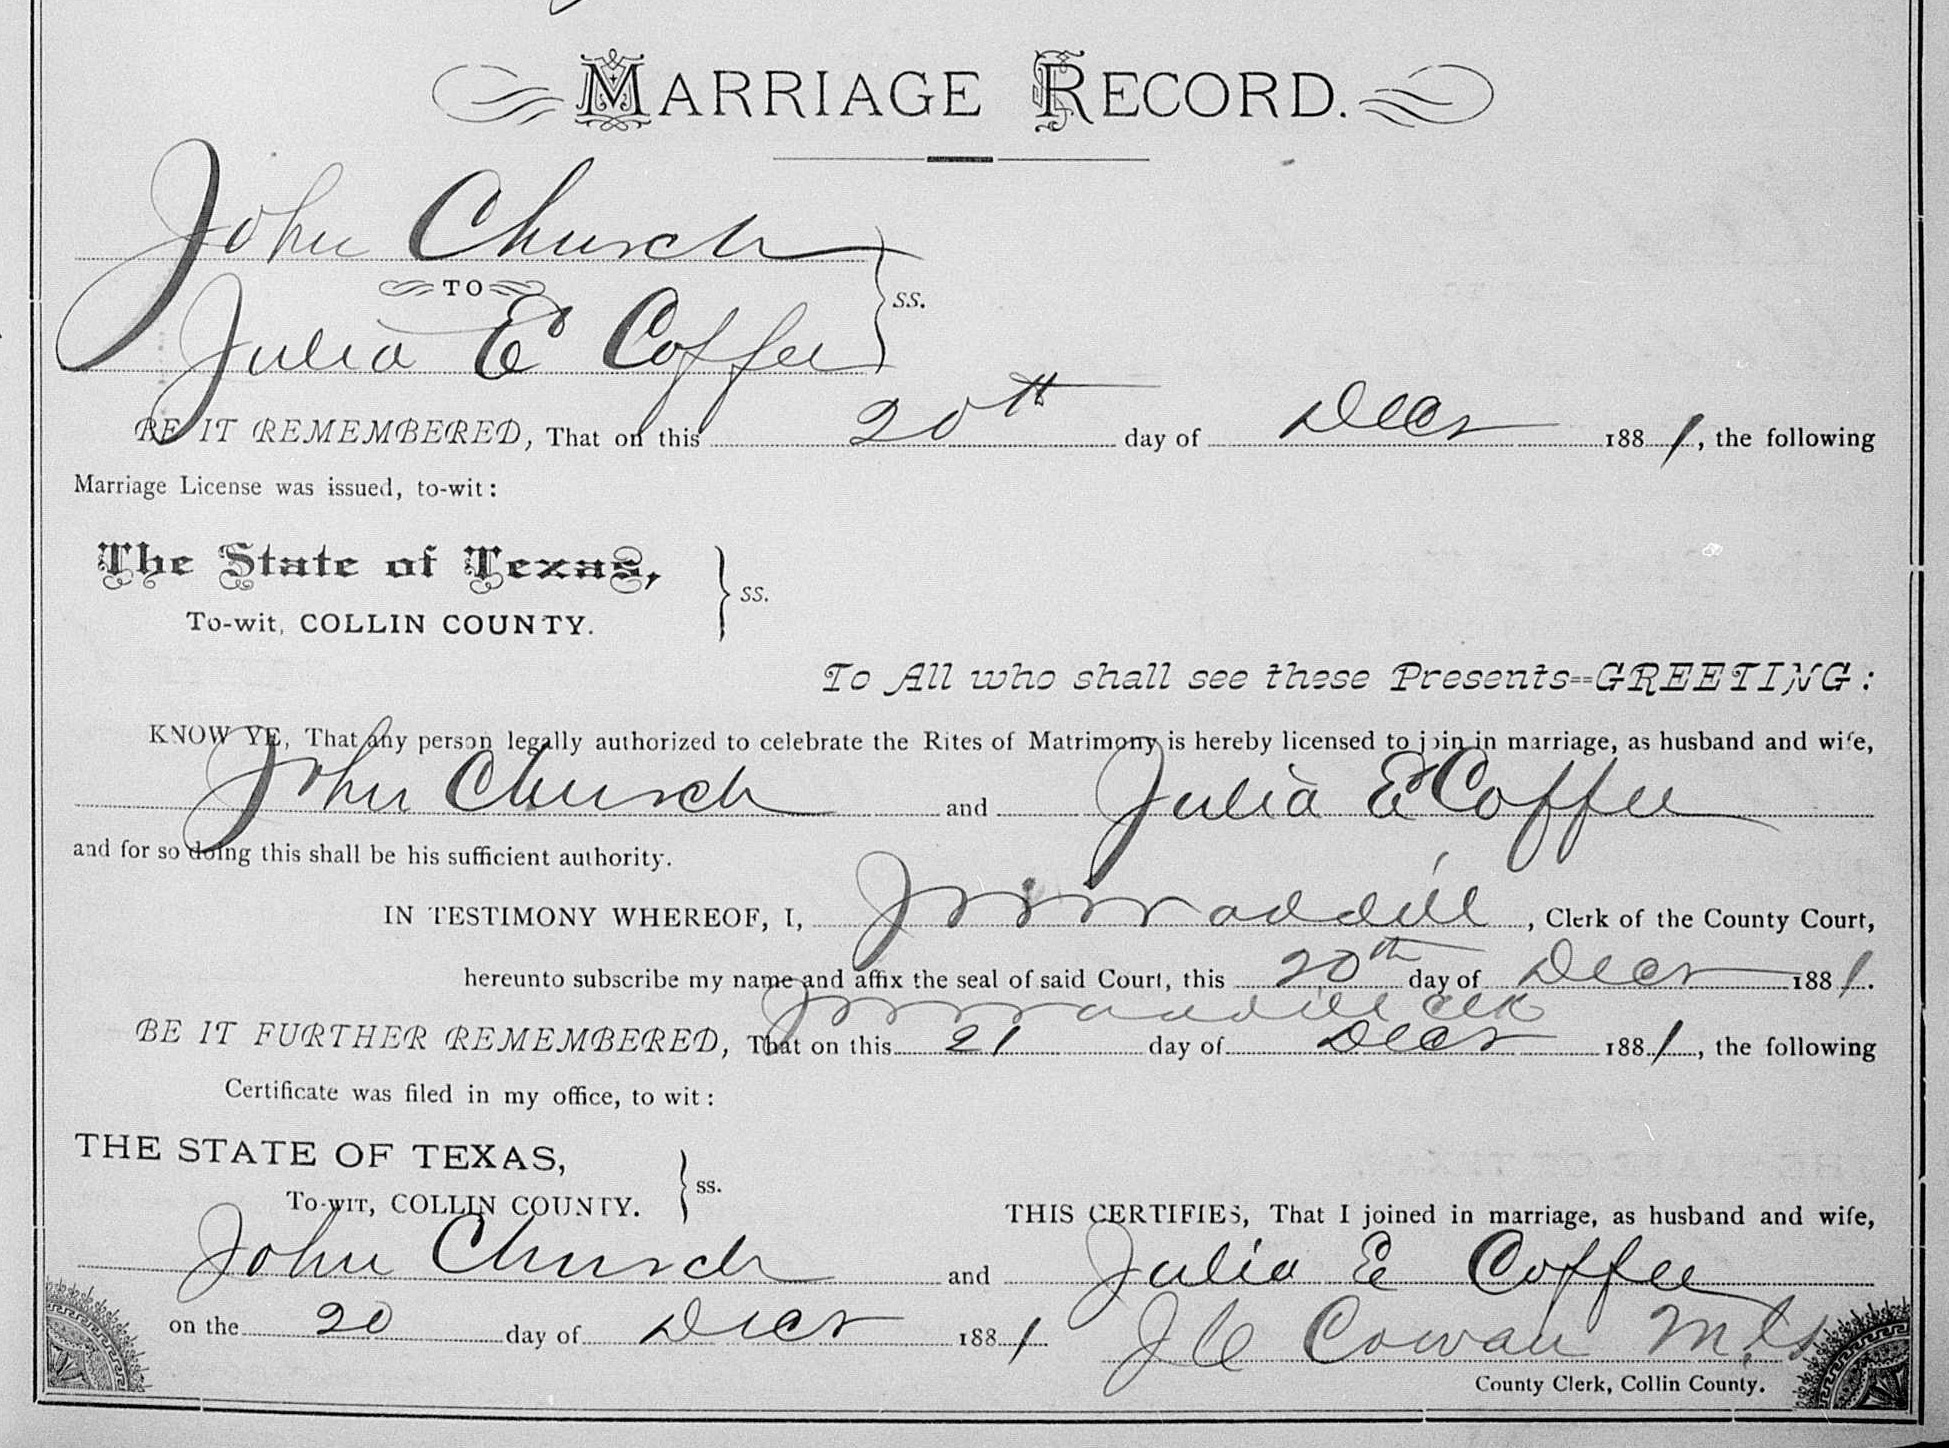 MARRIAGE RECORD.
John Church
TO
SS.
Julia E Coffee
BE IT REMEMBERED, That on this 20th day of Decr 1881, the following
Marriage License was issued, to-wit:
The State of Texas,
SS.
To-wit, COLLIN COUNTY.
To All who shall see these Presents==GREETING:
KNOW YE, That any person legally authorized to celebrate the Rites of Matrimony is hereby licensed to join in marriage, as husband and wife,
John Church and Julia E Coffee
and for so doing this shall be his sufficient authority.
IN TESTIMONY WHEREOF, I, J M Waddill, Clerk of the County Court,
hereunto subscribe my name and affix the seal of said Court, this 20th day of Decr 1881.
J M Waddill Clk
BE IT FURTHER REMEMBERED, That on this 21 day of Decr 1881, the following
Certificate was filed in my office, to wit:
THE STATE OF TEXAS,
SS.
To-wit, COLLIN COUNTY.
THIS CERTIFIES, That I joined in marriage, as husband and wife,
John Church and Julia E Coffee
on the 20 day of Decr 1881
J C Cowan
County Clerk, Collin County.